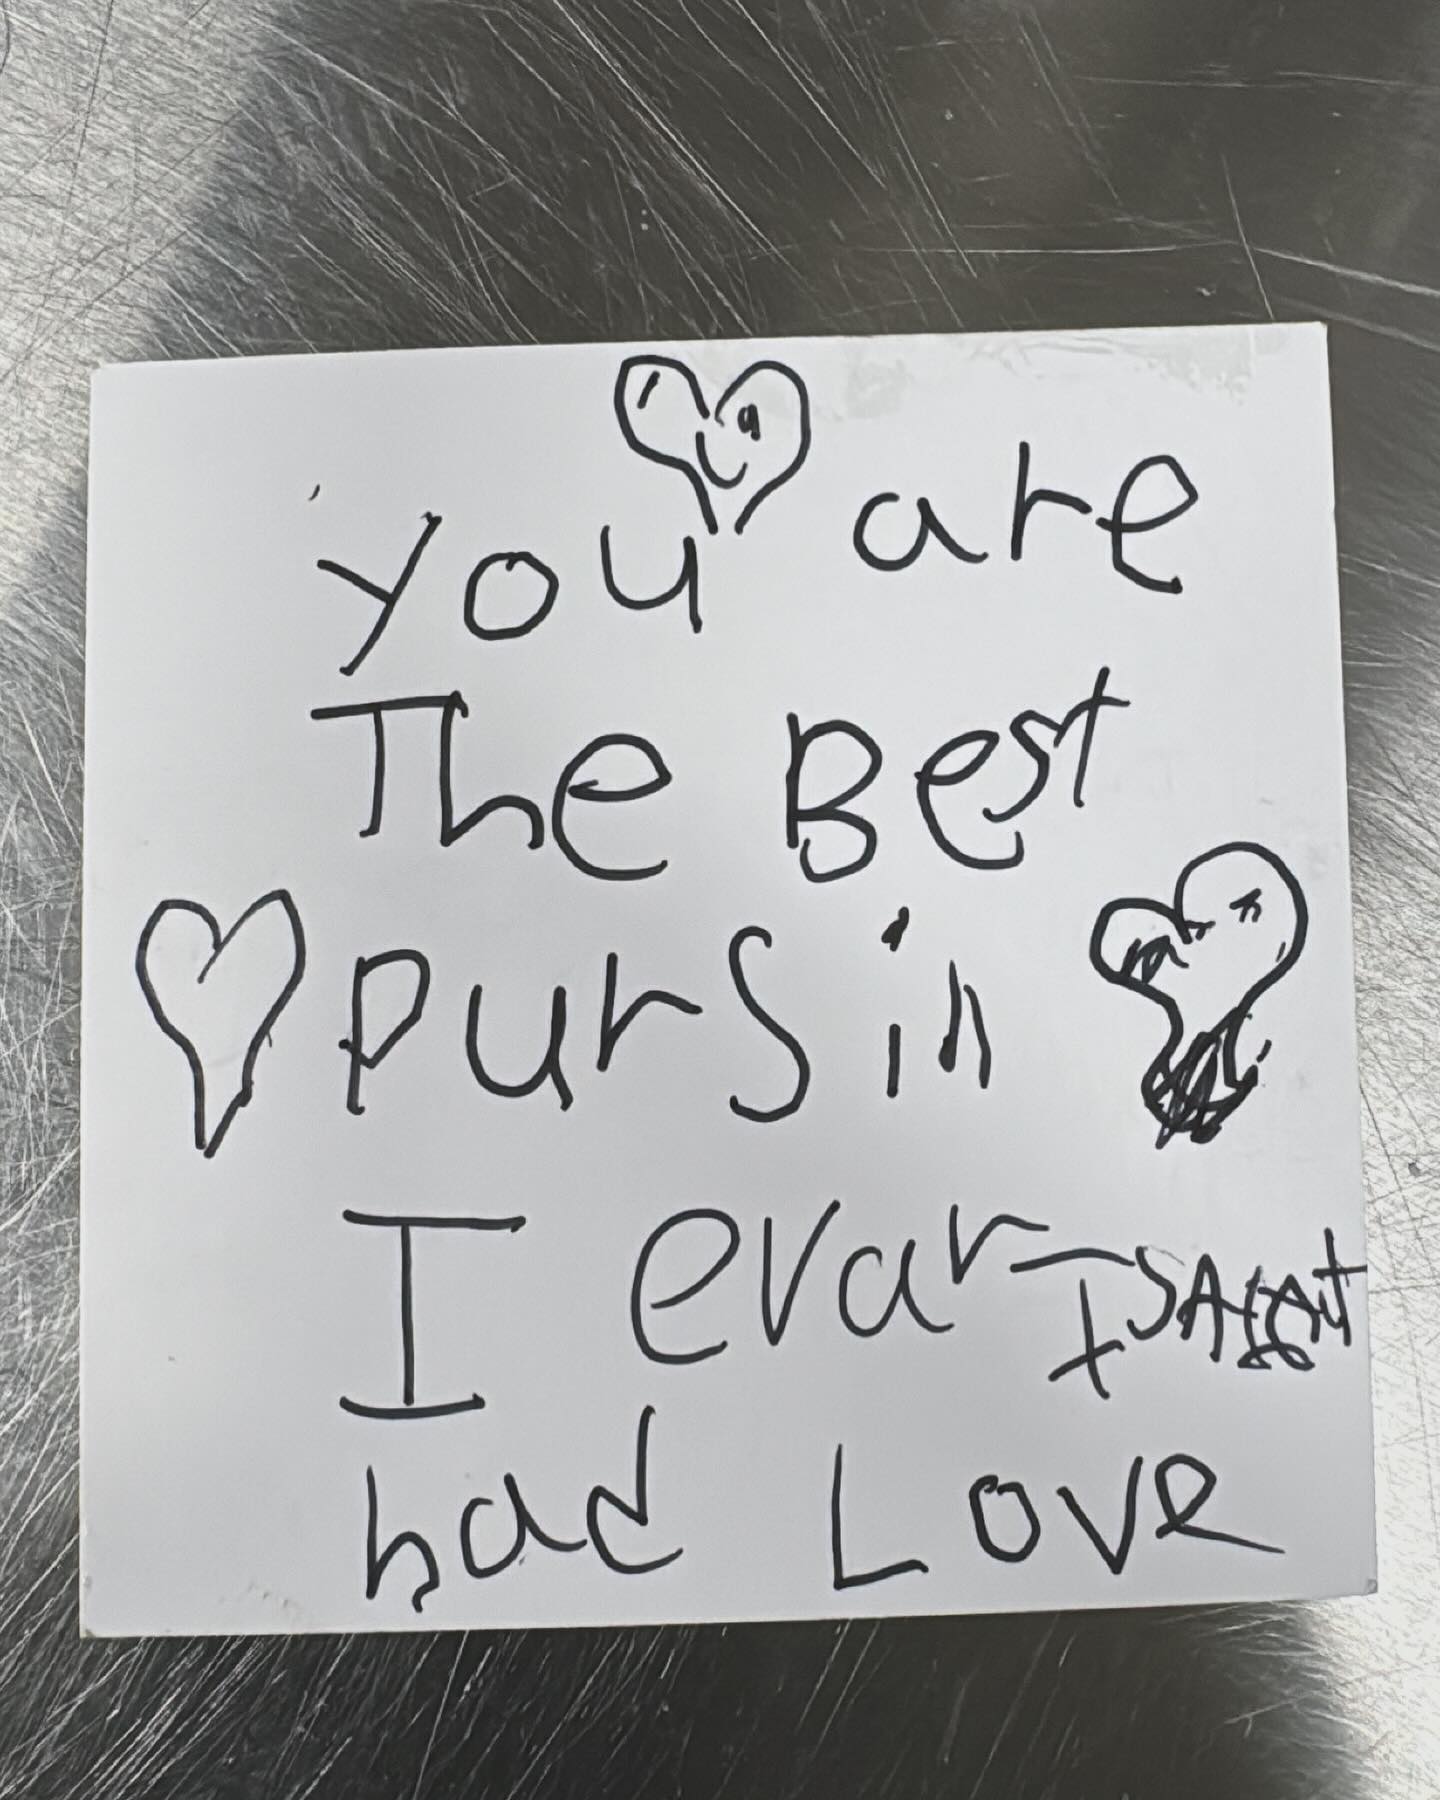 you are
The Best
pursin
I evar
had Love